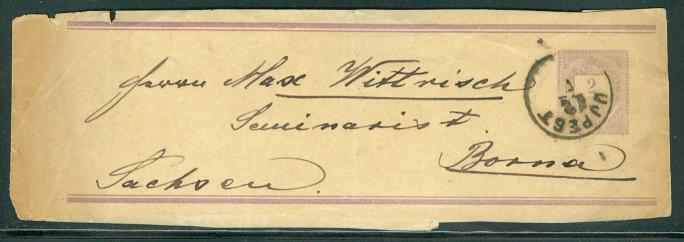 Herrn Max Wittrisch
Seminarist.
Borna
Sachsen.
2
UJPEST